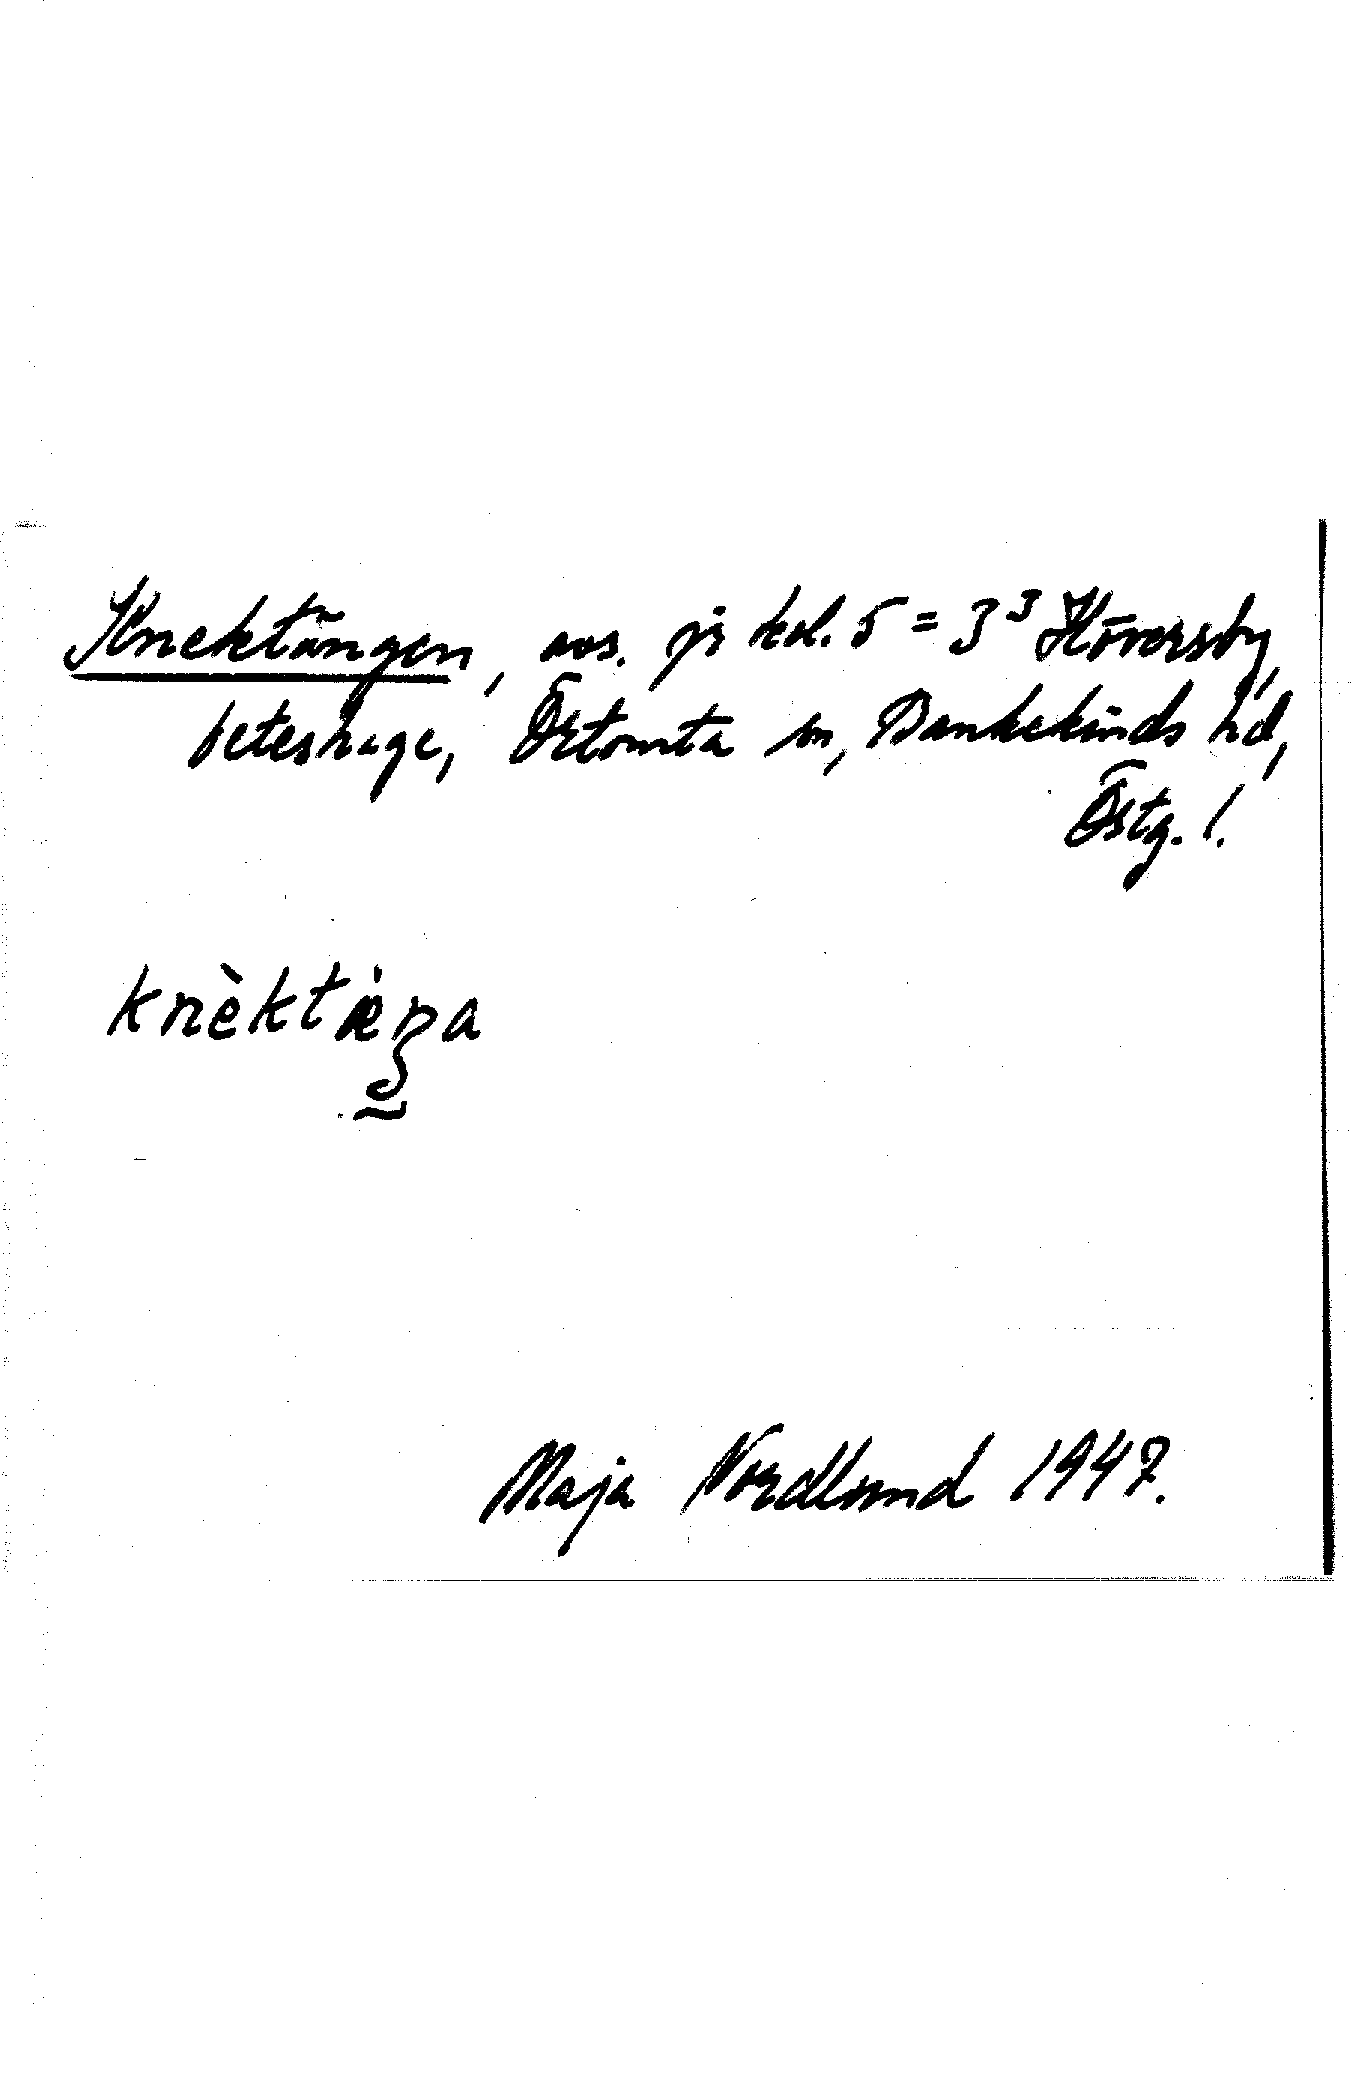 Knektängen, avs. jr kol. 5 = 3³ Höversby,
beteshage, Örtomta sn, Bankekinds hd,
Östg. l.
knèktæ̇ŋa
Maja Nordlund 1947.